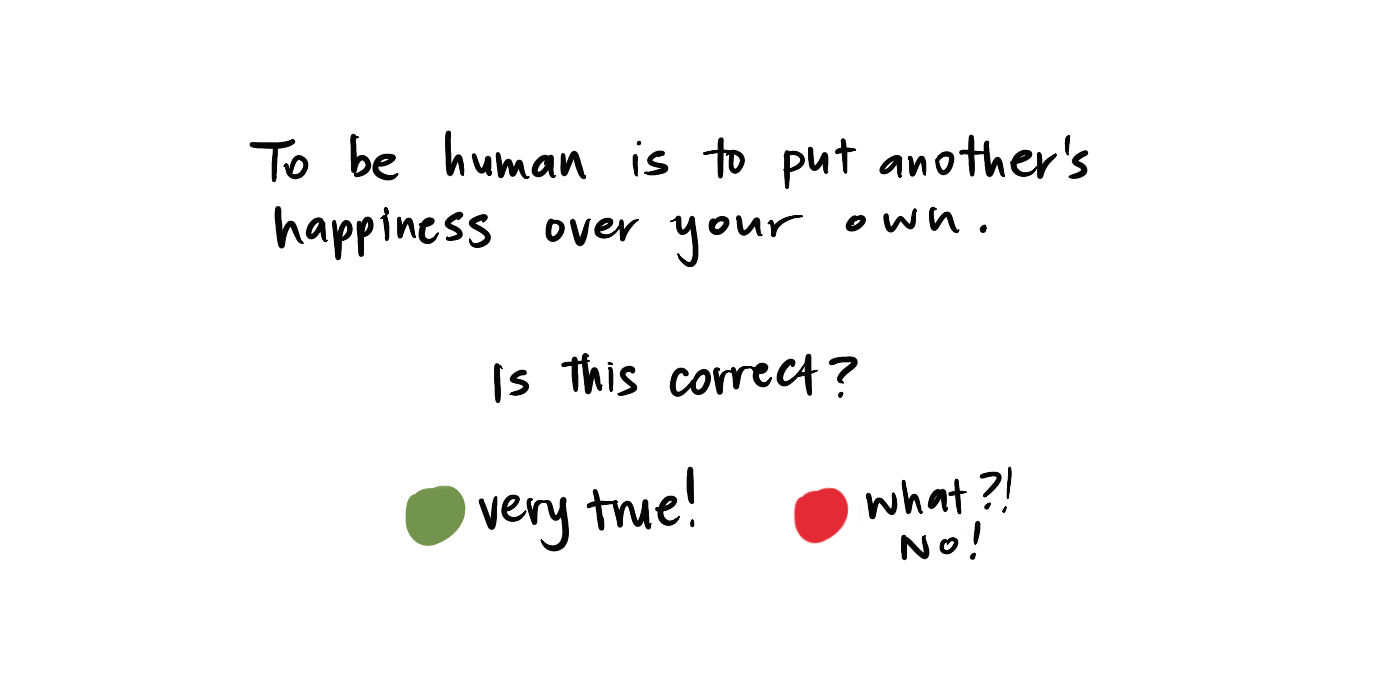 To be human is to put another's
happiness over your own.
Is this correct?
very true!
what?!
No!